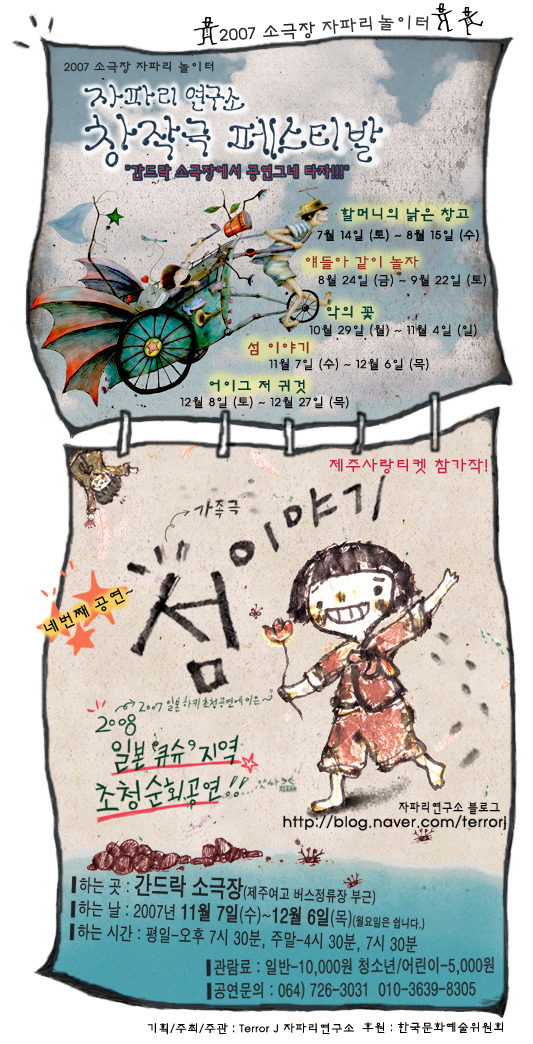 2007 소극장 자파리놀이터
2007 소극장 자파리 놀이터
자파리 연구소
창작극 페스티발
"간드락 소극장에서 공연그네 타자!!!"
할머니의 낡은 창고
7월 14일 (토) ~ 8월 15일 (수)
얘들아 같이 놀자
8월 24일 (금) ~ 9월 22일 (토)
악의 꽃
10월 29일 (월) ~ 11월 4일 (일)
섬 이야기
11월 7일 (수) ~ 12월 6일 (목)
어이그 저 귓것
12월 8일 (토) ~ 12월 27일 (목)
제주사랑티켓 참가작!
가족극
섬이야기
네번째 공연~
2007 일본 하키 초청공연에 이은~
2008
일본 "큐슈" 지역
초청순회공연!!
자파리연구소 블로그
http://blog.naver.com/terrorj
하는 곳 : 간드락 소극장(제주여고 버스정류장 부근)
하는 날 : 2007년 11월 7일(수)~12월 6일(목)(월요일은 쉽니다.)
하는 시간 : 평일-오후 7시 30분, 주말-4시 30분, 7시 30분
관람료 : 일반-10,000원 청소년/어린이-5,000원
공연문의 : 064) 726-3031 010-3639-8305
기획/주최/주관 : Terror J 자파리연구소 후원 : 한국문화예술위원회